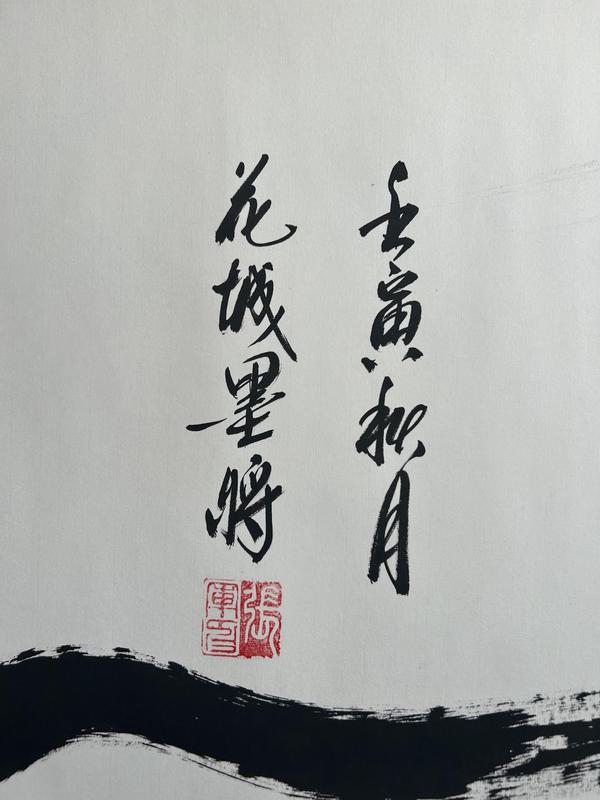 壬寅秋月
花城墨將
張